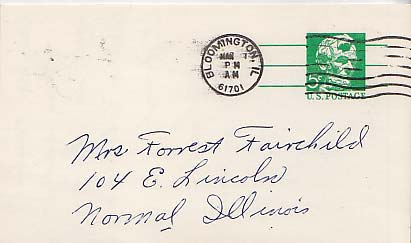 BLOOMINGTON, IL
MAR
PM
AM
61701
5c
U.S. POSTAGE
Mrs Forrest Fairchild
104 E. Lincoln
Normal Illinois